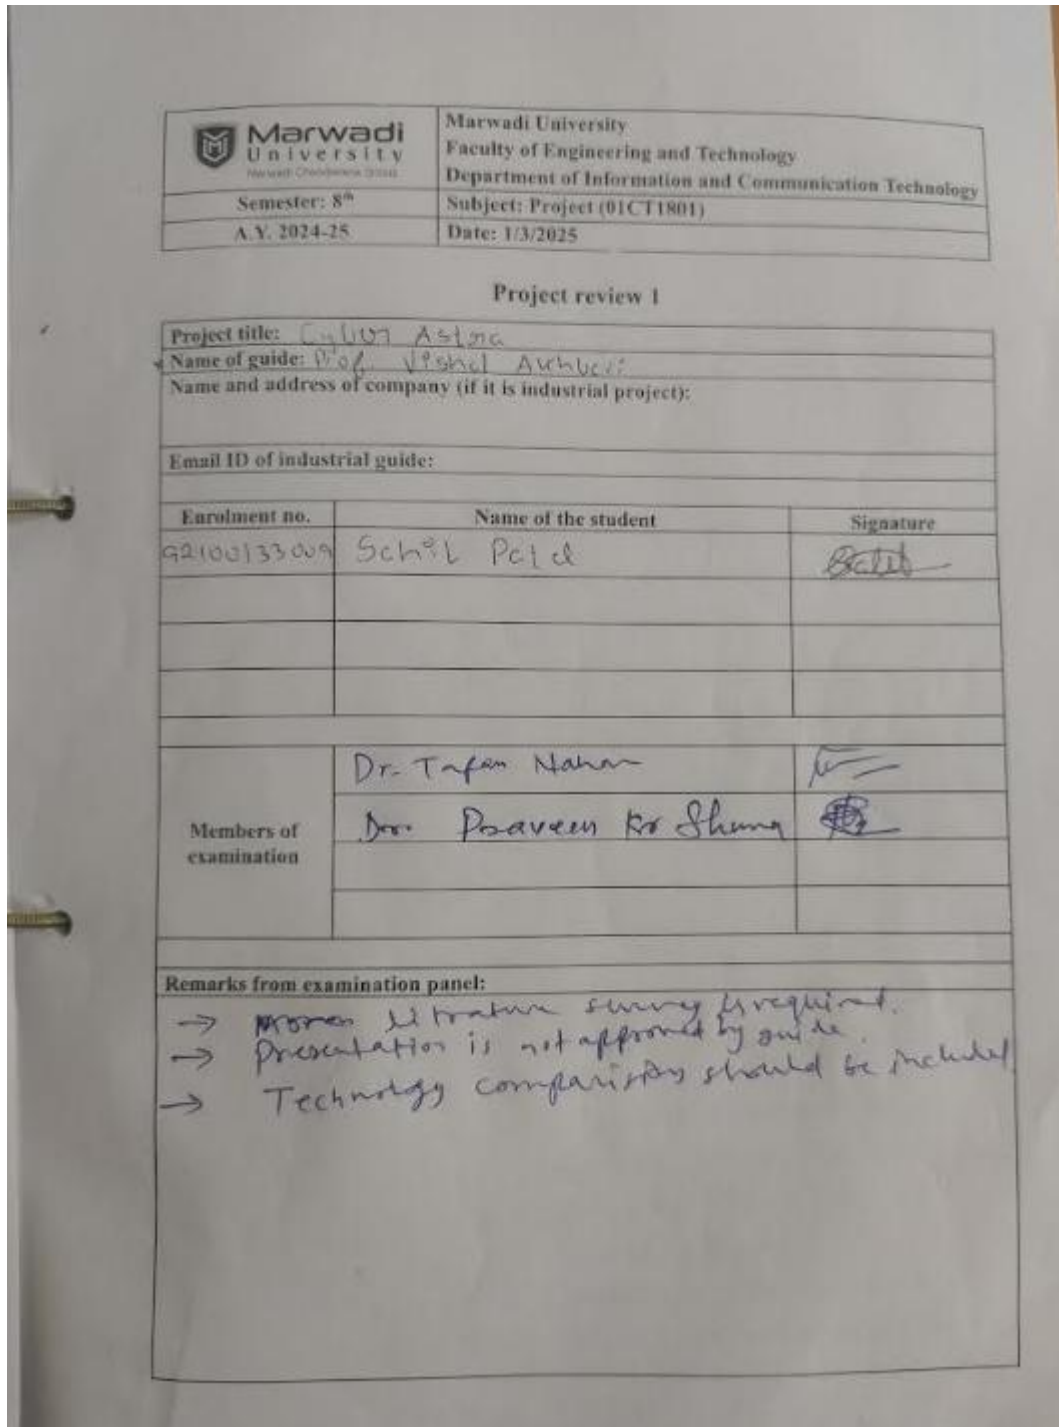 Marwadi
University
Marwadi Chandarana Group
Marwadi University
Faculty of Engineering and Technology
Department of Information and Communication Technology
Semester: 8th
Subject: Project (01CT1801)
A.Y. 2024-25
Date: 1/3/2025
Project review 1
Project title: Cyber Astra
Name of guide: Prof. Vishal
Name and address of company (if it is industrial project):
Email ID of industrial guide:
Enrolment no. Name of the student Signature
92100133009 Sahil Patel
Members of
examination
Dr. Tapan Nahar
Praveen Kr
Remarks from examination panel:
→ survey is required.
→ Presentation is not approved by guide.
→ Technology should be included.